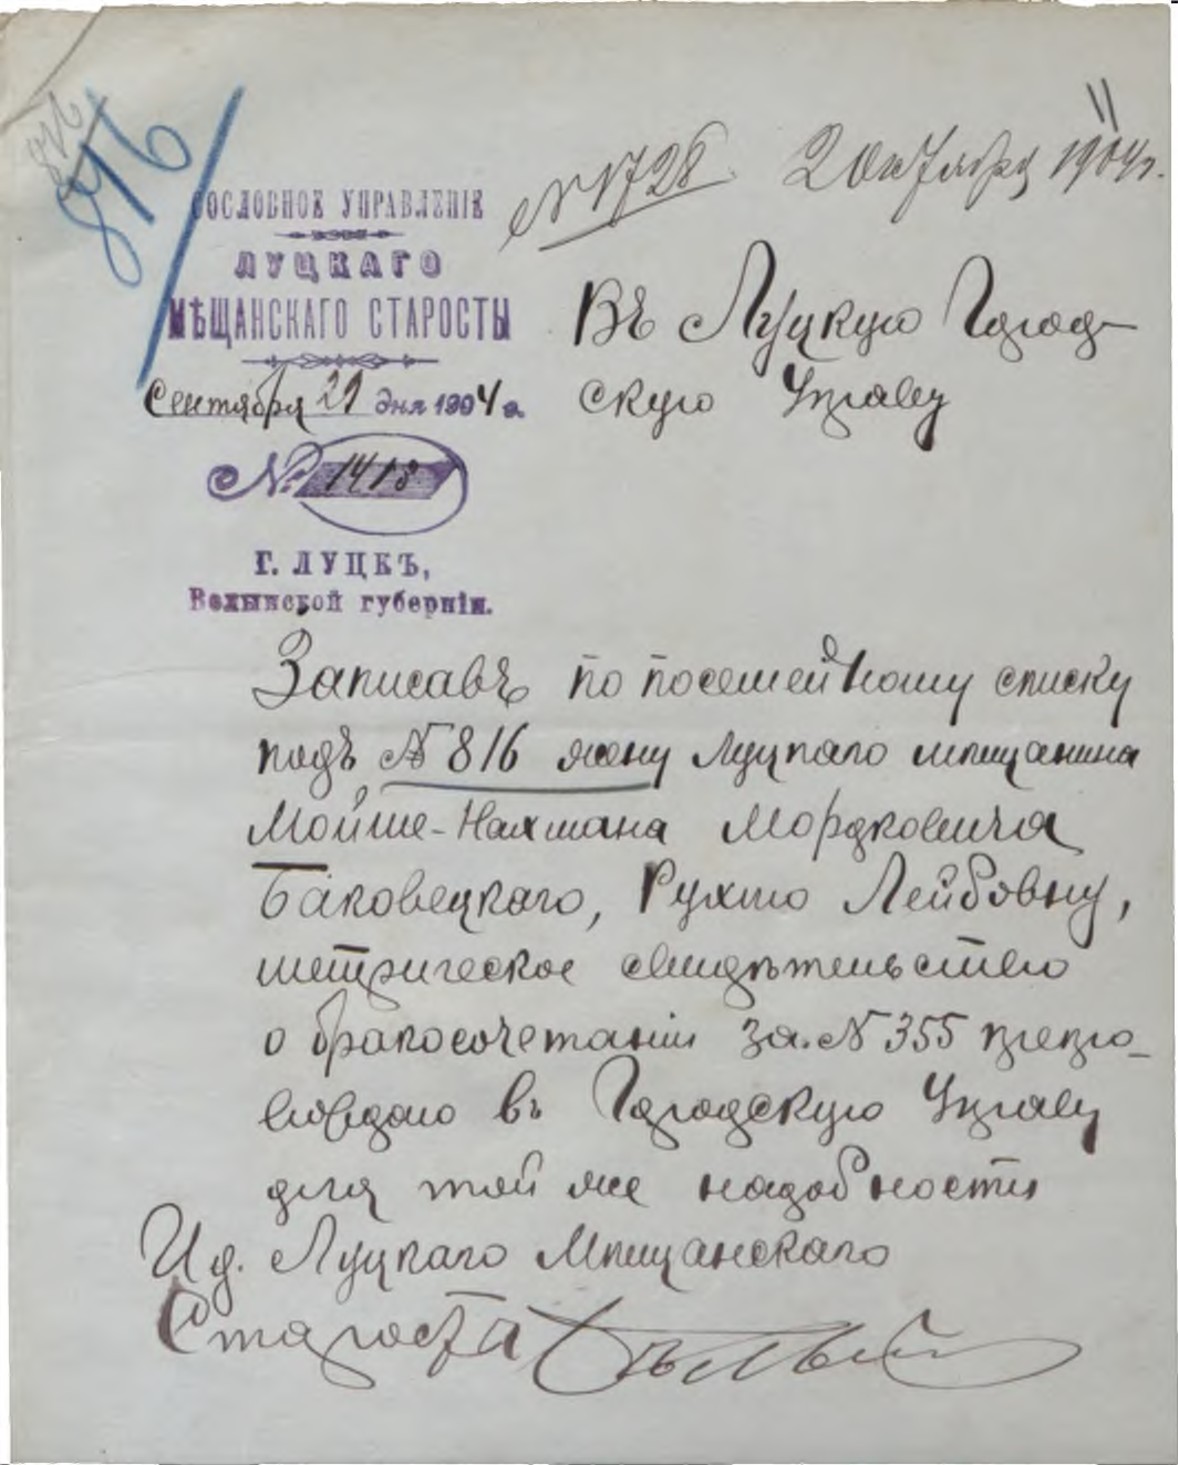 816
816
№ 1728. 2 Октября 1904 г.
СОСЛОВНОЕ УПРАВЛЕНІЕ
ЛУЦКАГО
МѢЩАНСКАГО СТАРОСТЫ
Сентября 29 дня 1904 г.
№ 1413
Г. ЛУЦКЪ,
Волынской губерніи.
Въ Луцкую Город-
скую Управу
Записавъ по посемейному списку
подъ № 816 жену луцкаго мѣщанина
Мойше-Нахмана Мордковича
Баковецкаго, Рухлю Лейбовну,
метрическое свидѣтельство
о бракосочетаніи за № 355 препро-
вождаю въ Городскую Управу
для той же надобности
И. д. Луцкаго Мѣщанскаго
Староста